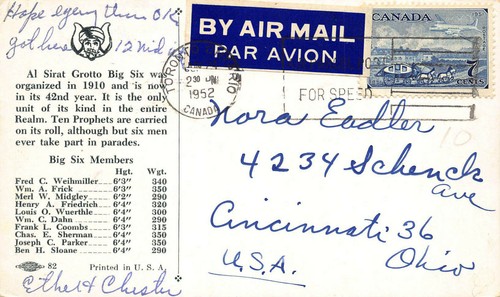 Hope everything OK
got here 12 Mid
Al Sirat Grotto Big Six was
organized in 1910 and is now
in its 42nd year. It is the only
unit of its kind in the entire
Realm. Ten Prophets are carried
on its roll, although but six men
ever take part in parades.
Big Six Members
Hgt. Wgt.
Fred C. Weihmiller 6'3" 340
Wm. A. Frick 6'3" 350
Merl W. Midgley 6'2" 290
Henry A. Friedrich 6'4" 320
Louis O. Wuerthle 6'4" 300
Wm. C. Dahn 6'4" 290
Frank L. Coombs 6'3" 315
Chas. E. Sherman 6'4" 350
Joseph C. Parker 6'4" 350
Ben H. Sloane 6'4" 290
82 Printed in U. S. A.
Ethel & Chester
BY AIR MAIL
PAR AVION
TORONTO
2 30 PM
1952
CANADA
FOR SPEED
CANADA
7
CENTS
Nora Eadler
10
4234 Schenck
Ave
Cincinnati 36
Ohio
U.S.A.